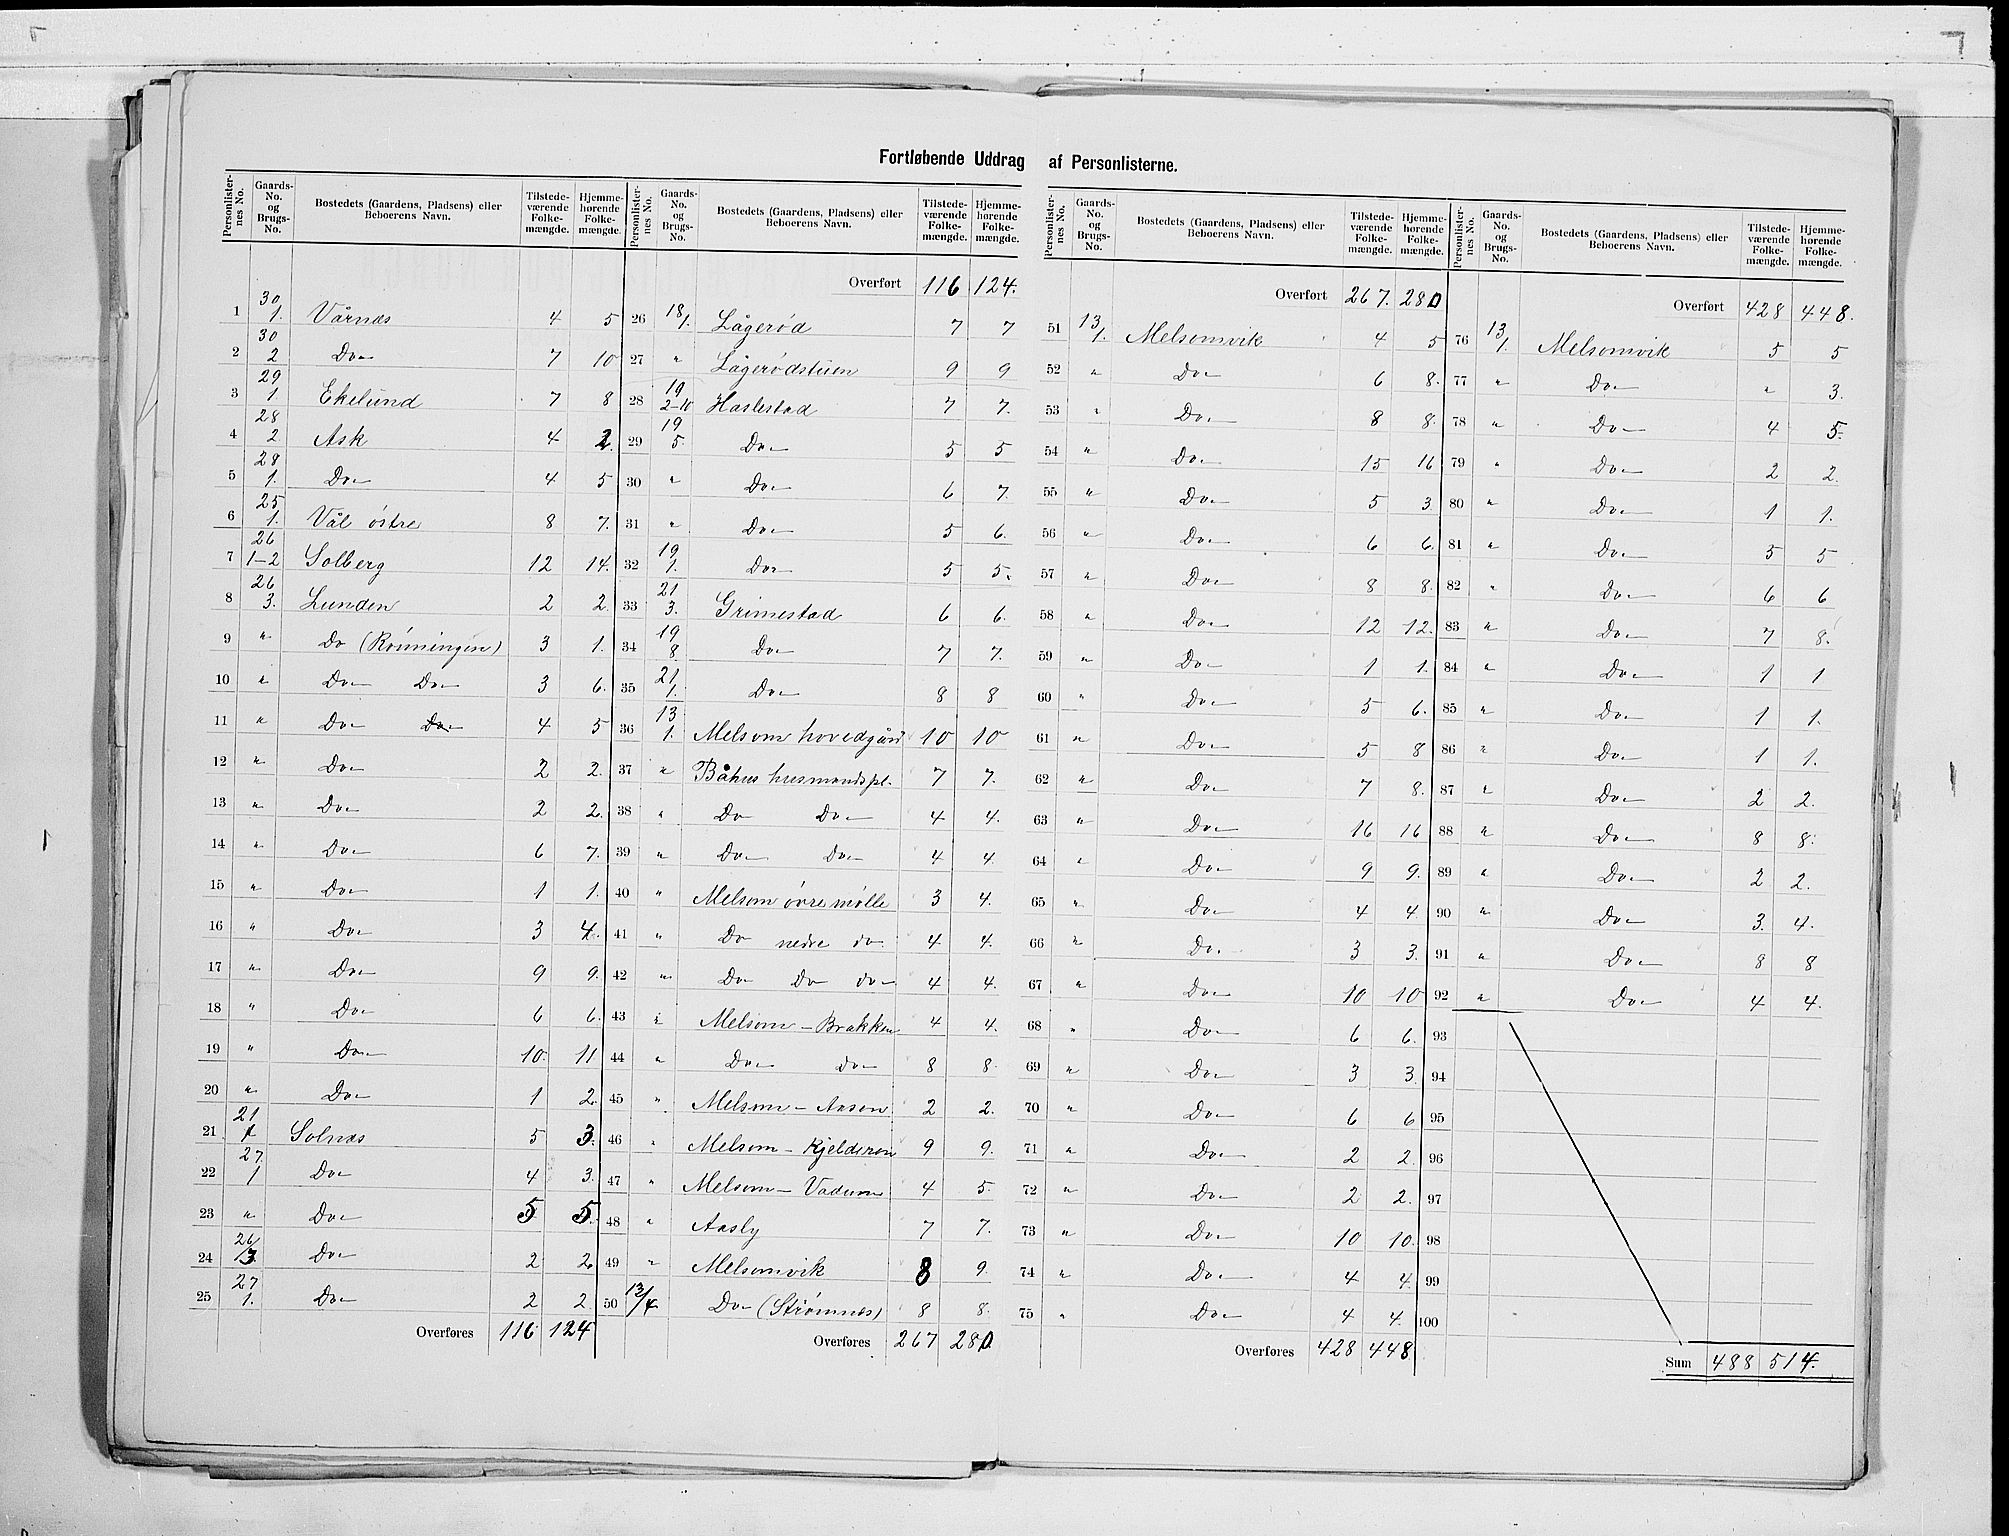 Fortløbende Uddrag af Personlisterne.
Personlister-nes No. | Gaards-No. og Brugs-No. | Bostedets (Gaardens, Pladsens) eller Beboerens Navn. | Tilstede-værende Folke-mængde. | Hjemme-hørende Folke-mængde.
1 30/1. Vårnæs 4 5
2 30/2 Do 7 10
3 29/1 Ekelund 7 8
4 28/2 Ask 4 2.
5 28/1. Do 4 5
6 25/1. Vål östre 8 7.
7 26/1-2 Solberg 12 14.
8 26/3. Lunden 2 2.
9 " Do (Rönningen) 3 1.
10 " Do Do 3 6.
11 " Do Do 4 5
12 " Do 2 2.
13 " Do 2 2.
14 " Do 6 7.
15 " Do 1 1.
16 " Do 3 4.
17 " Do 9 9.
18 " Do 6 6.
19 " Do 10. 11
20 " Do 1 2.
21 21/1 Solnæs 5 3.
22 27./1 Do 4 3.
23 " Do 5 5.
24 26/3 Do 2 2
25 27/1. Do 2 2.
Overføres 116 124
Personlister-nes No. | Gaards-No. og Brugs-No. | Bostedets (Gaardens, Pladsens) eller Beboerens Navn. | Tilstede-værende Folke-mængde. | Hjemme-hørende Folke-mængde.
Overført 116 124.
26 18/1. Lågerød 7 7
27 " Lågerødstuen 9 9
28 19/2-10 Haslestad 7 7.
29 19/5. Do 5 5
30 " Do 6 7.
31 " Do 5 6.
32 19/1. Do 5 5.
33 21/3. Grimestad 6 6.
34 19/8. Do 7 7.
35 21/1. Do 8 8
36 13/1. Melsom hovedgård 10 10
37 " Båhus husmandspl. 7 7.
38 " Do Do 4 4.
39 " Do Do 4 4.
40 " Melsom övre mölle 3 4.
41 " Do nedre do 4 4.
42 " Do Do do 4 4.
43 " Melsom - Brakken 4 4.
44 " Do do 8 8.
45 " Melsom - Aasen 2 2.
46 " Melsom - Kjelderen 9 9.
47 " Melsom - Vadum 4 5.
48 " Aasly 7 7.
49 " Melsomvik 8 9.
50 13/4 Do (Strømnes) 8 8.
Overføres 267 280.
Personlister-nes No. | Gaards-No. og Brugs-No. | Bostedets (Gaardens, Pladsens) eller Beboerens Navn. | Tilstede-værende Folke-mængde. | Hjemme-hørende Folke-mængde.
Overført 267. 280
51 13/1. Melsomvik 4 5
52 " Do 6 8.
53 " Do 8 8.
54 " Do 15 16
55 " Do 5 3.
56 " Do 6 6.
57 " Do 8 8.
58 " Do 12 12.
59 " Do 1 1.
60 " Do 5 6.
61 " Do 5 8
62 " Do 7 8.
63 " Do 16 16
64 " Do 9 9.
65 " Do 4 4.
66 " Do 3 3.
67 " Do 10 10
68 " Do 6 6.
69 " Do 3 3.
70 " Do 6 6
71 " Do 2 2.
72 " Do 2 2.
73 " Do 10 10.
74 " Do 4 4.
75 " Do 4 4.
Overføres 428 448.
Personlister-nes No. | Gaards-No. og Brugs-No. | Bostedets (Gaardens, Pladsens) eller Beboerens Navn. | Tilstede-værende Folke-mængde. | Hjemme-hørende Folke-mængde.
Overført 428 448.
76 13/1. Melsomvik 5 5
77 " Do " 3.
78 " Do 4 5.
79 " Do 2 2.
80 " Do 1 1.
81 " Do 5 5
82 " Do 6 6
83 " Do 7 8.
84 " Do 1 1
85 " Do 1 1.
86 " Do 1 1.
87 " Do 2 2.
88 " Do 8 8.
89 " Do 2 2.
90 " Do 3. 4.
91 " Do 8 8
92 " Do 4 4.
93
94
95
96
97
98
99
100
Sum 488 514.